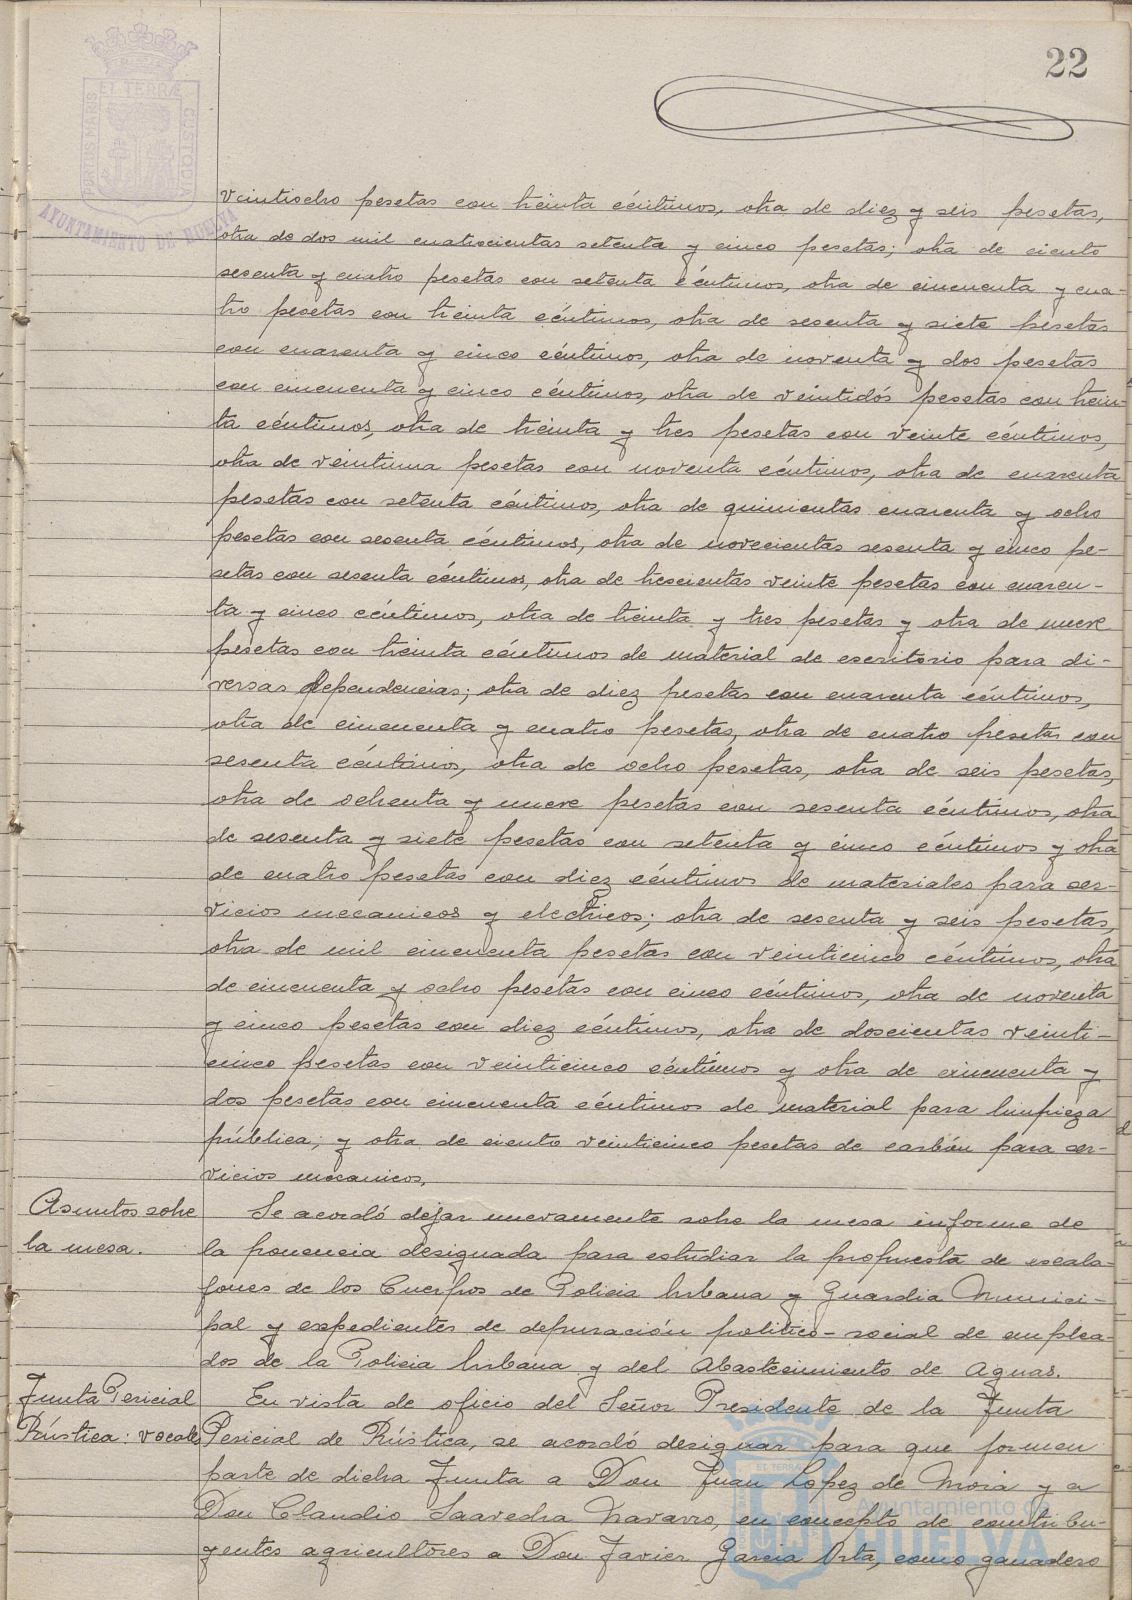 22
PORTUS MARIS ET TERRÆ CUSTODIA
AYUNTAMIENTO DE HUELVA
veintiocho pesetas con treinta céntimos, otra de diez y seis pesetas,
otra de dos mil cuatrocientas setenta y cinco pesetas; otra de ciento
sesenta y cuatro pesetas con setenta céntimos, otra de cincuenta y cua-
tro pesetas con treinta céntimos, otra de sesenta y siete pesetas
con cuarenta y cinco céntimos, otra de noventa y dos pesetas
con cincuenta y cinco céntimos, otra de veintidós pesetas con trein-
ta céntimos, otra de treinta y tres pesetas con veinte céntimos,
otra de veintiuna pesetas con noventa céntimos, otra de cuarenta
pesetas con setenta céntimos, otra de quinientas cuarenta y ocho
pesetas con sesenta céntimos, otra de novecientas sesenta y cinco pe-
setas con sesenta céntimos, otra de trescientas veinte pesetas con cuaren-
ta y cinco céntimos, otra de treinta y tres pesetas y otra de nueve
pesetas con treinta céntimos de material de escritorio para di-
versas dependencias; otra de diez pesetas con cuarenta céntimos,
otra de cincuenta y cuatro pesetas, otra de cuatro pesetas con
sesenta céntimos, otra de ocho pesetas, otra de seis pesetas,
otra de ochenta y nueve pesetas con sesenta céntimos, otra
de sesenta y siete pesetas con setenta y cinco céntimos y otra
de cuatro pesetas con diez céntimos de materiales para ser-
vicios mecanicos y electricos; otra de sesenta y seis pesetas,
otra de mil cincuenta pesetas con veinticinco céntimos, otra
de cincuenta y ocho pesetas con cinco céntimos, otra de noventa
y cinco pesetas con diez céntimos, otra de doscientas veinti-
cinco pesetas con veinticinco céntimos y otra de cincuenta y
dos pesetas con cincuenta céntimos de material para limpieza
pública; y otra de ciento veinticinco pesetas de carbón para ser-
vicios mecanicos.
Asuntos sobre
la mesa.
Se acordó dejar nuevamente sobre la mesa informe de
la ponencia designada para estudiar la propuesta de escala-
fones de los Cuerpos de Policia Urbana y Guardia Munici-
pal y expedientes de depuración politico-social de emplea-
dos de la Policia Urbana y del Abastecimiento de Aguas.
Junta Pericial
Rústica: vocales
En vista de oficio del Señor Presidente de la Junta
Pericial de Rústica, se acordó designar para que formen
parte de dicha Junta a Don Juan Lopez de Mora y a
Don Claudio Saavedra Navarro, en concepto de contribu-
yentes agricultores a Don Javier Garcia Orta, como ganadero
Ayuntamiento de
HUELVA